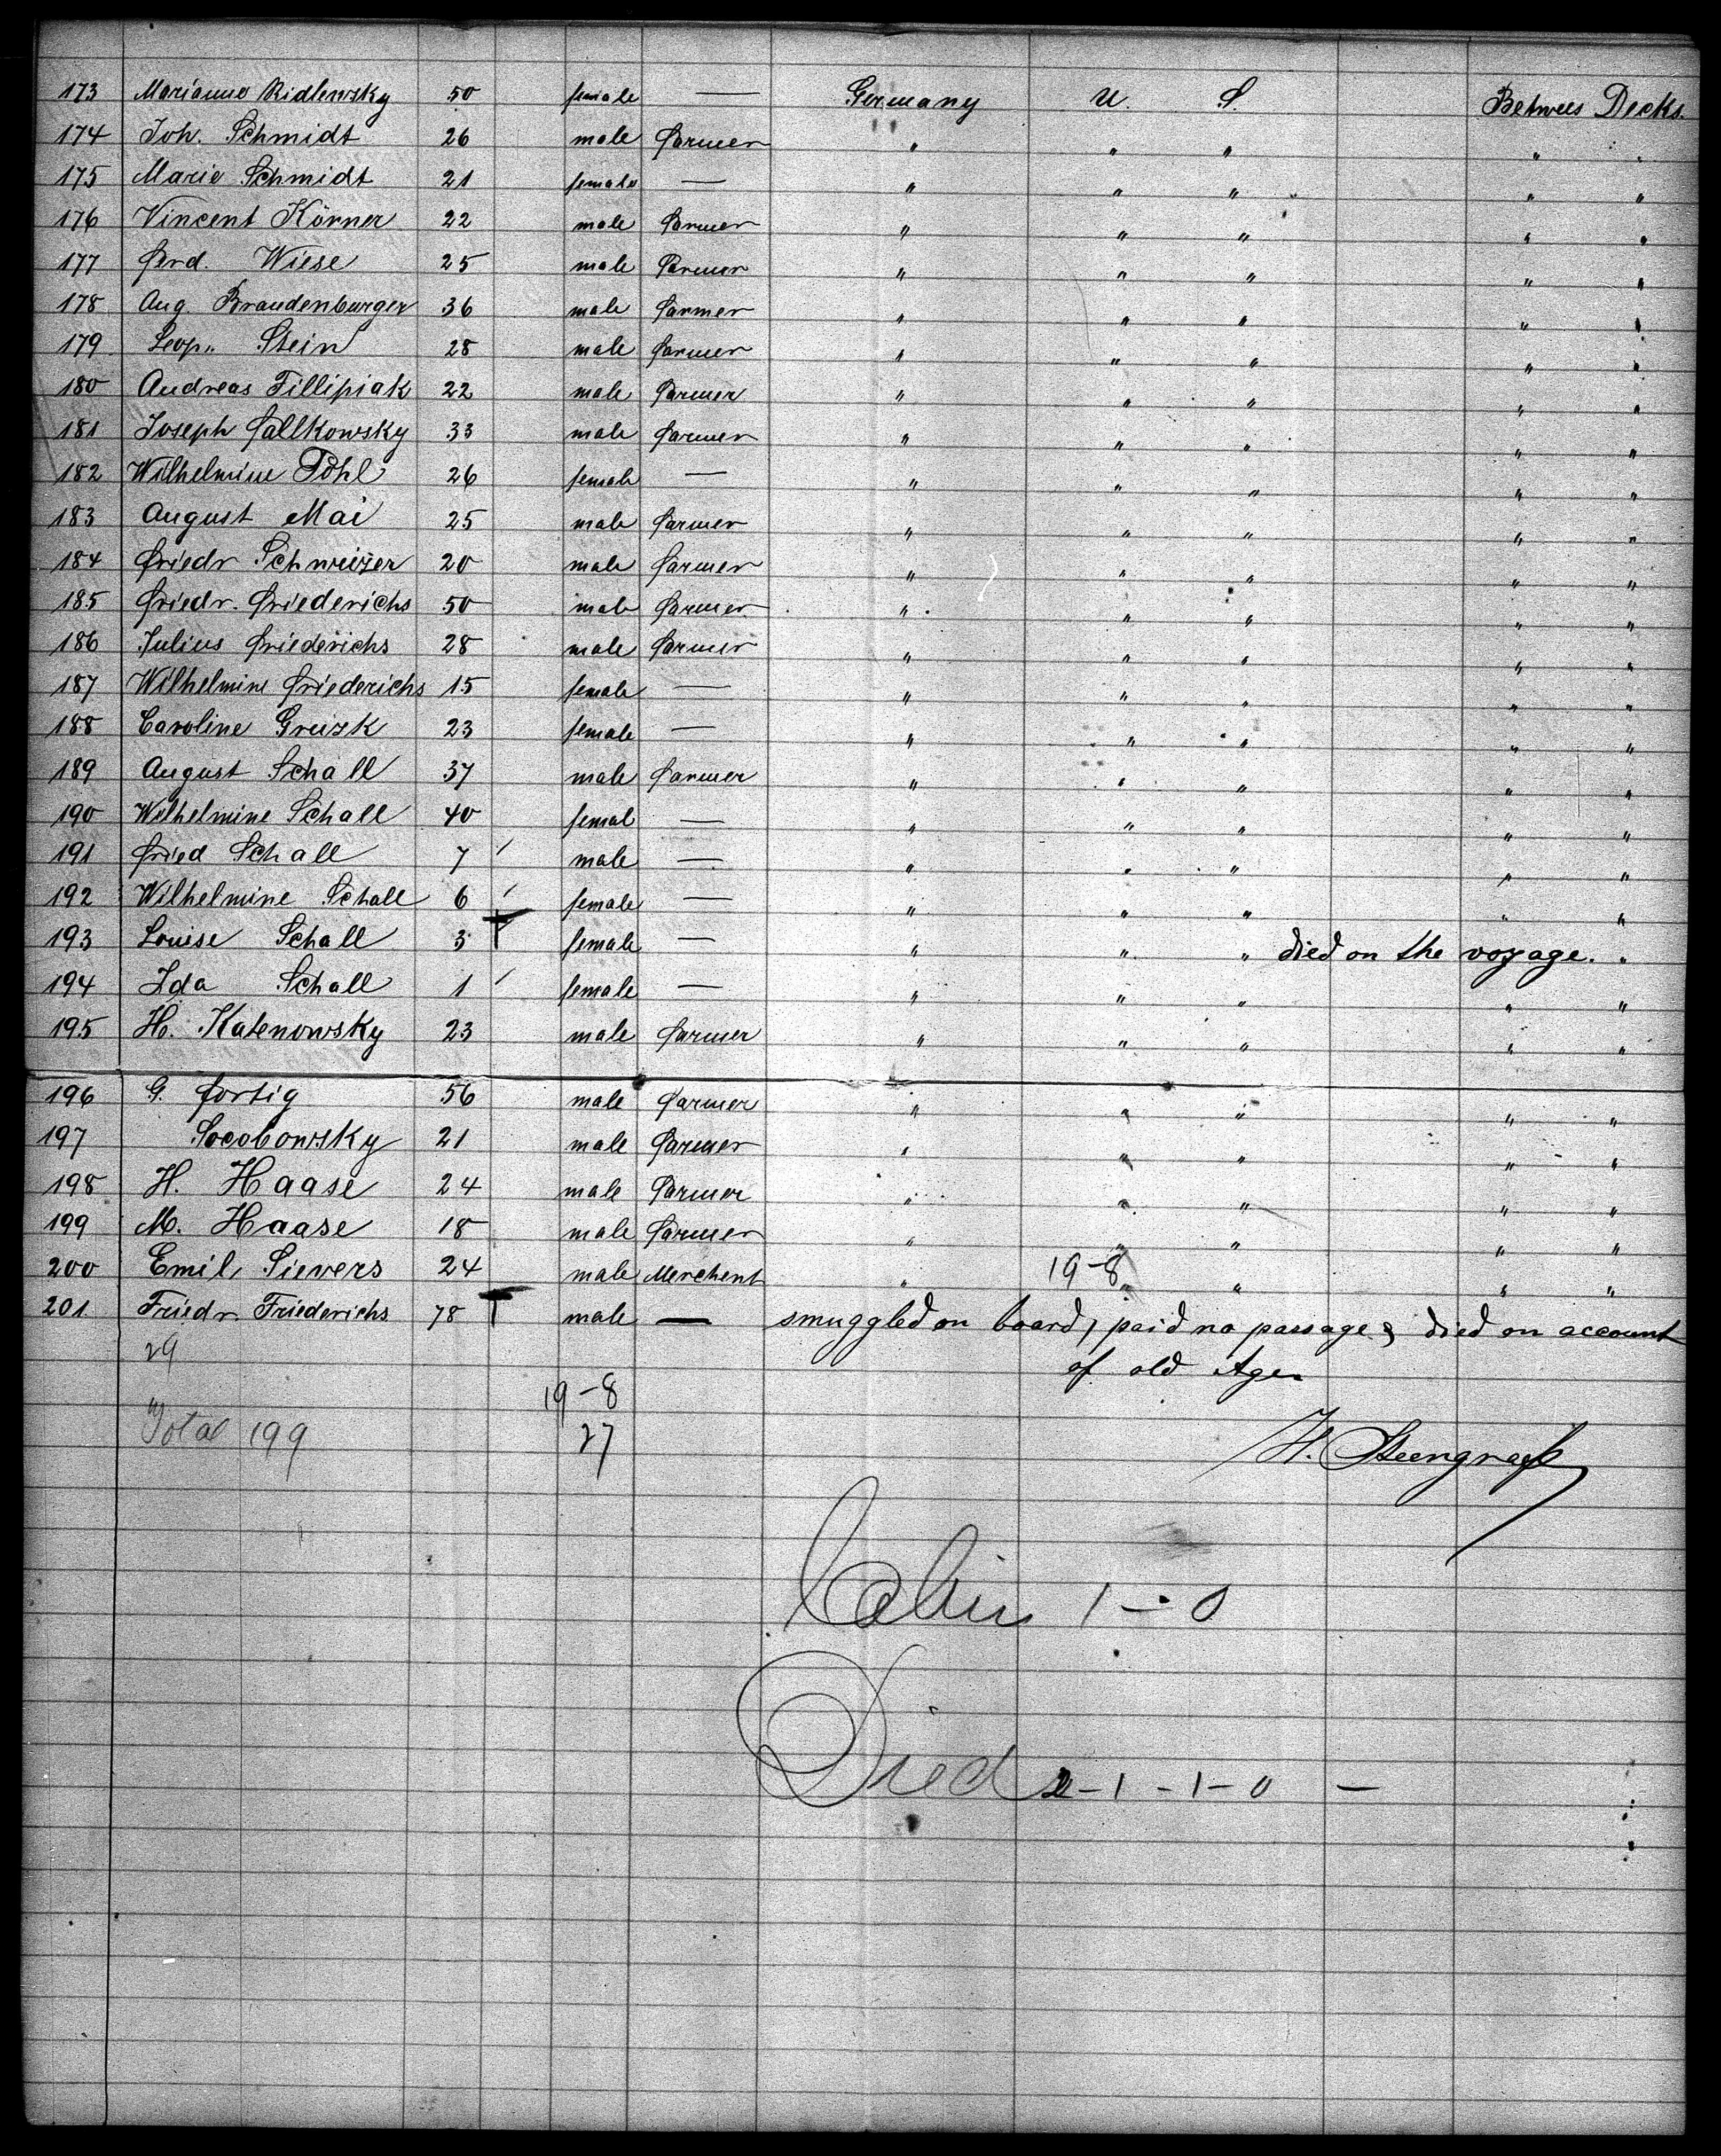 173 Marianne Ridlewsky 50 female — Germany U. S. Betwees Decks.
174 Joh. Schmidt 26 male farmer " " " " "
175 Marie Schmidt 21 female — " " " " "
176 Vincent Körner 22 male farmer " " " " "
177 Ferd. Wiese 25 male farmer " " " " "
178 Aug. Brandenburger 36 male farmer " " " " "
179 Leop. Stein 28 male farmer " " " " "
180 Andreas Fillipiak 22 male farmer " " " " "
181 Joseph Fallkowsky 33 male farmer " " " " "
182 Wilhelmine Pohl 26 female — " " " " "
183 August Mai 25 male farmer " " " " "
184 Friedr Schweizer 20 male farmer " " " " "
185 Friedr. Friederichs 50 male farmer " " " " "
186 Julius Friederichs 28 male farmer " " " " "
187 Wilhelmine Friederichs 15 female — " " " " "
188 Caroline Greizk 23 female — " " " " "
189 August Schall 37 male farmer " " " " "
190 Wilhelmine Schall 40 femal — " " " " "
191 Fried Schall 7 male — " " " " "
192 Wilhelmine Schall 6 female — " " " " "
193 Louise Schall 3 female — " " " died on the voyage. "
194 Ida Schall 1 female — " " " " "
195 H. Katenowsky 23 male farmer " " " " "
196 G. Fortig 56 male farmer " " " " "
197 Socobowsky 21 male farmer " " " " "
198 H. Haase 24 male farmer " " " " "
199 M. Haase 18 male farmer " " " " "
200 Emil Sievers 24 male Merchent " 19-8 " " " "
201. Friedr. Friederichs 78 male — smuggled on board, paid no passage & died on account
of old Age.
29
19-8
Total 199 27
H. Steengrafe
Cabin 1-0
Died 2-1-1-0 —